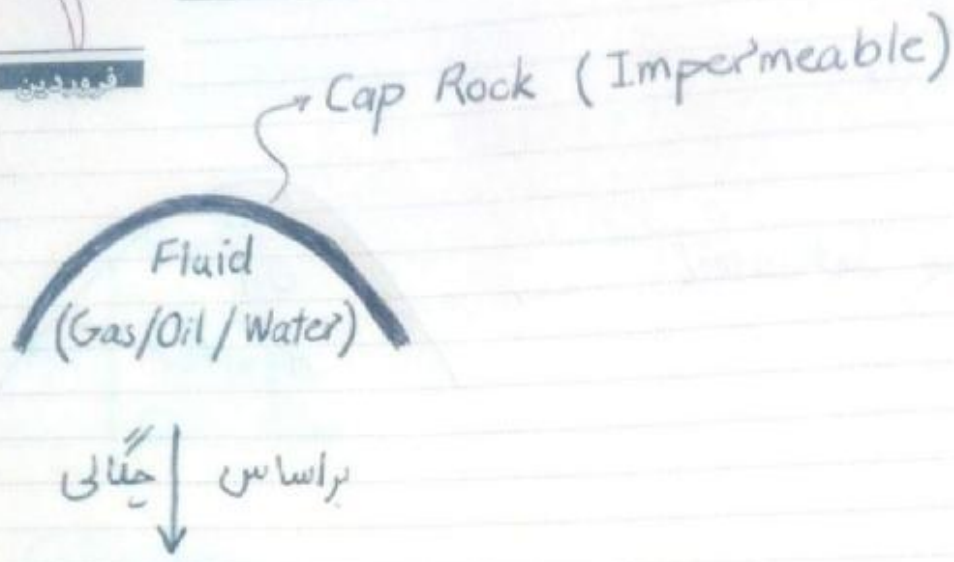 فروردین
Cap Rock (Impermeable)
Fluid
(Gas/Oil/Water)
براساس چگالی